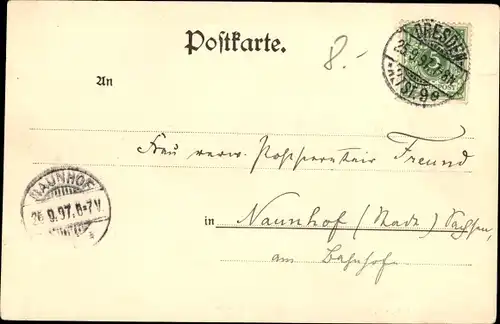 Postkarte.
8.-
DRESDEN
25.9.97.7-8N.
An
Frau verw. Postsecretair Freund
NAUNHOF
26.9.97.6-7V.
in Naunhof (Stadt) Sachsen,
am Bahnhofe